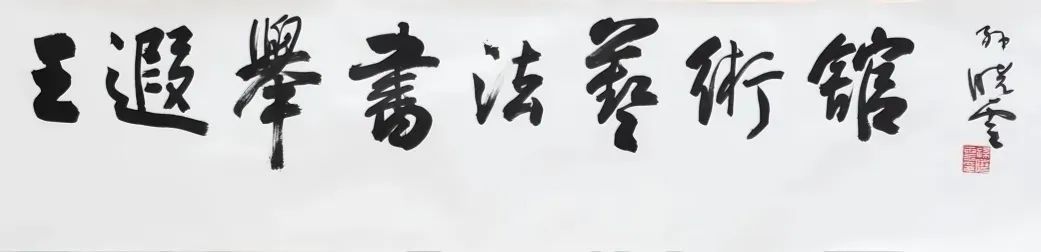 王遐舉書法藝術館
孙晓云